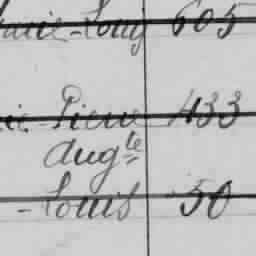 Marie-Louis 605
ie Pierre 433
Aug^te
- Louis 50